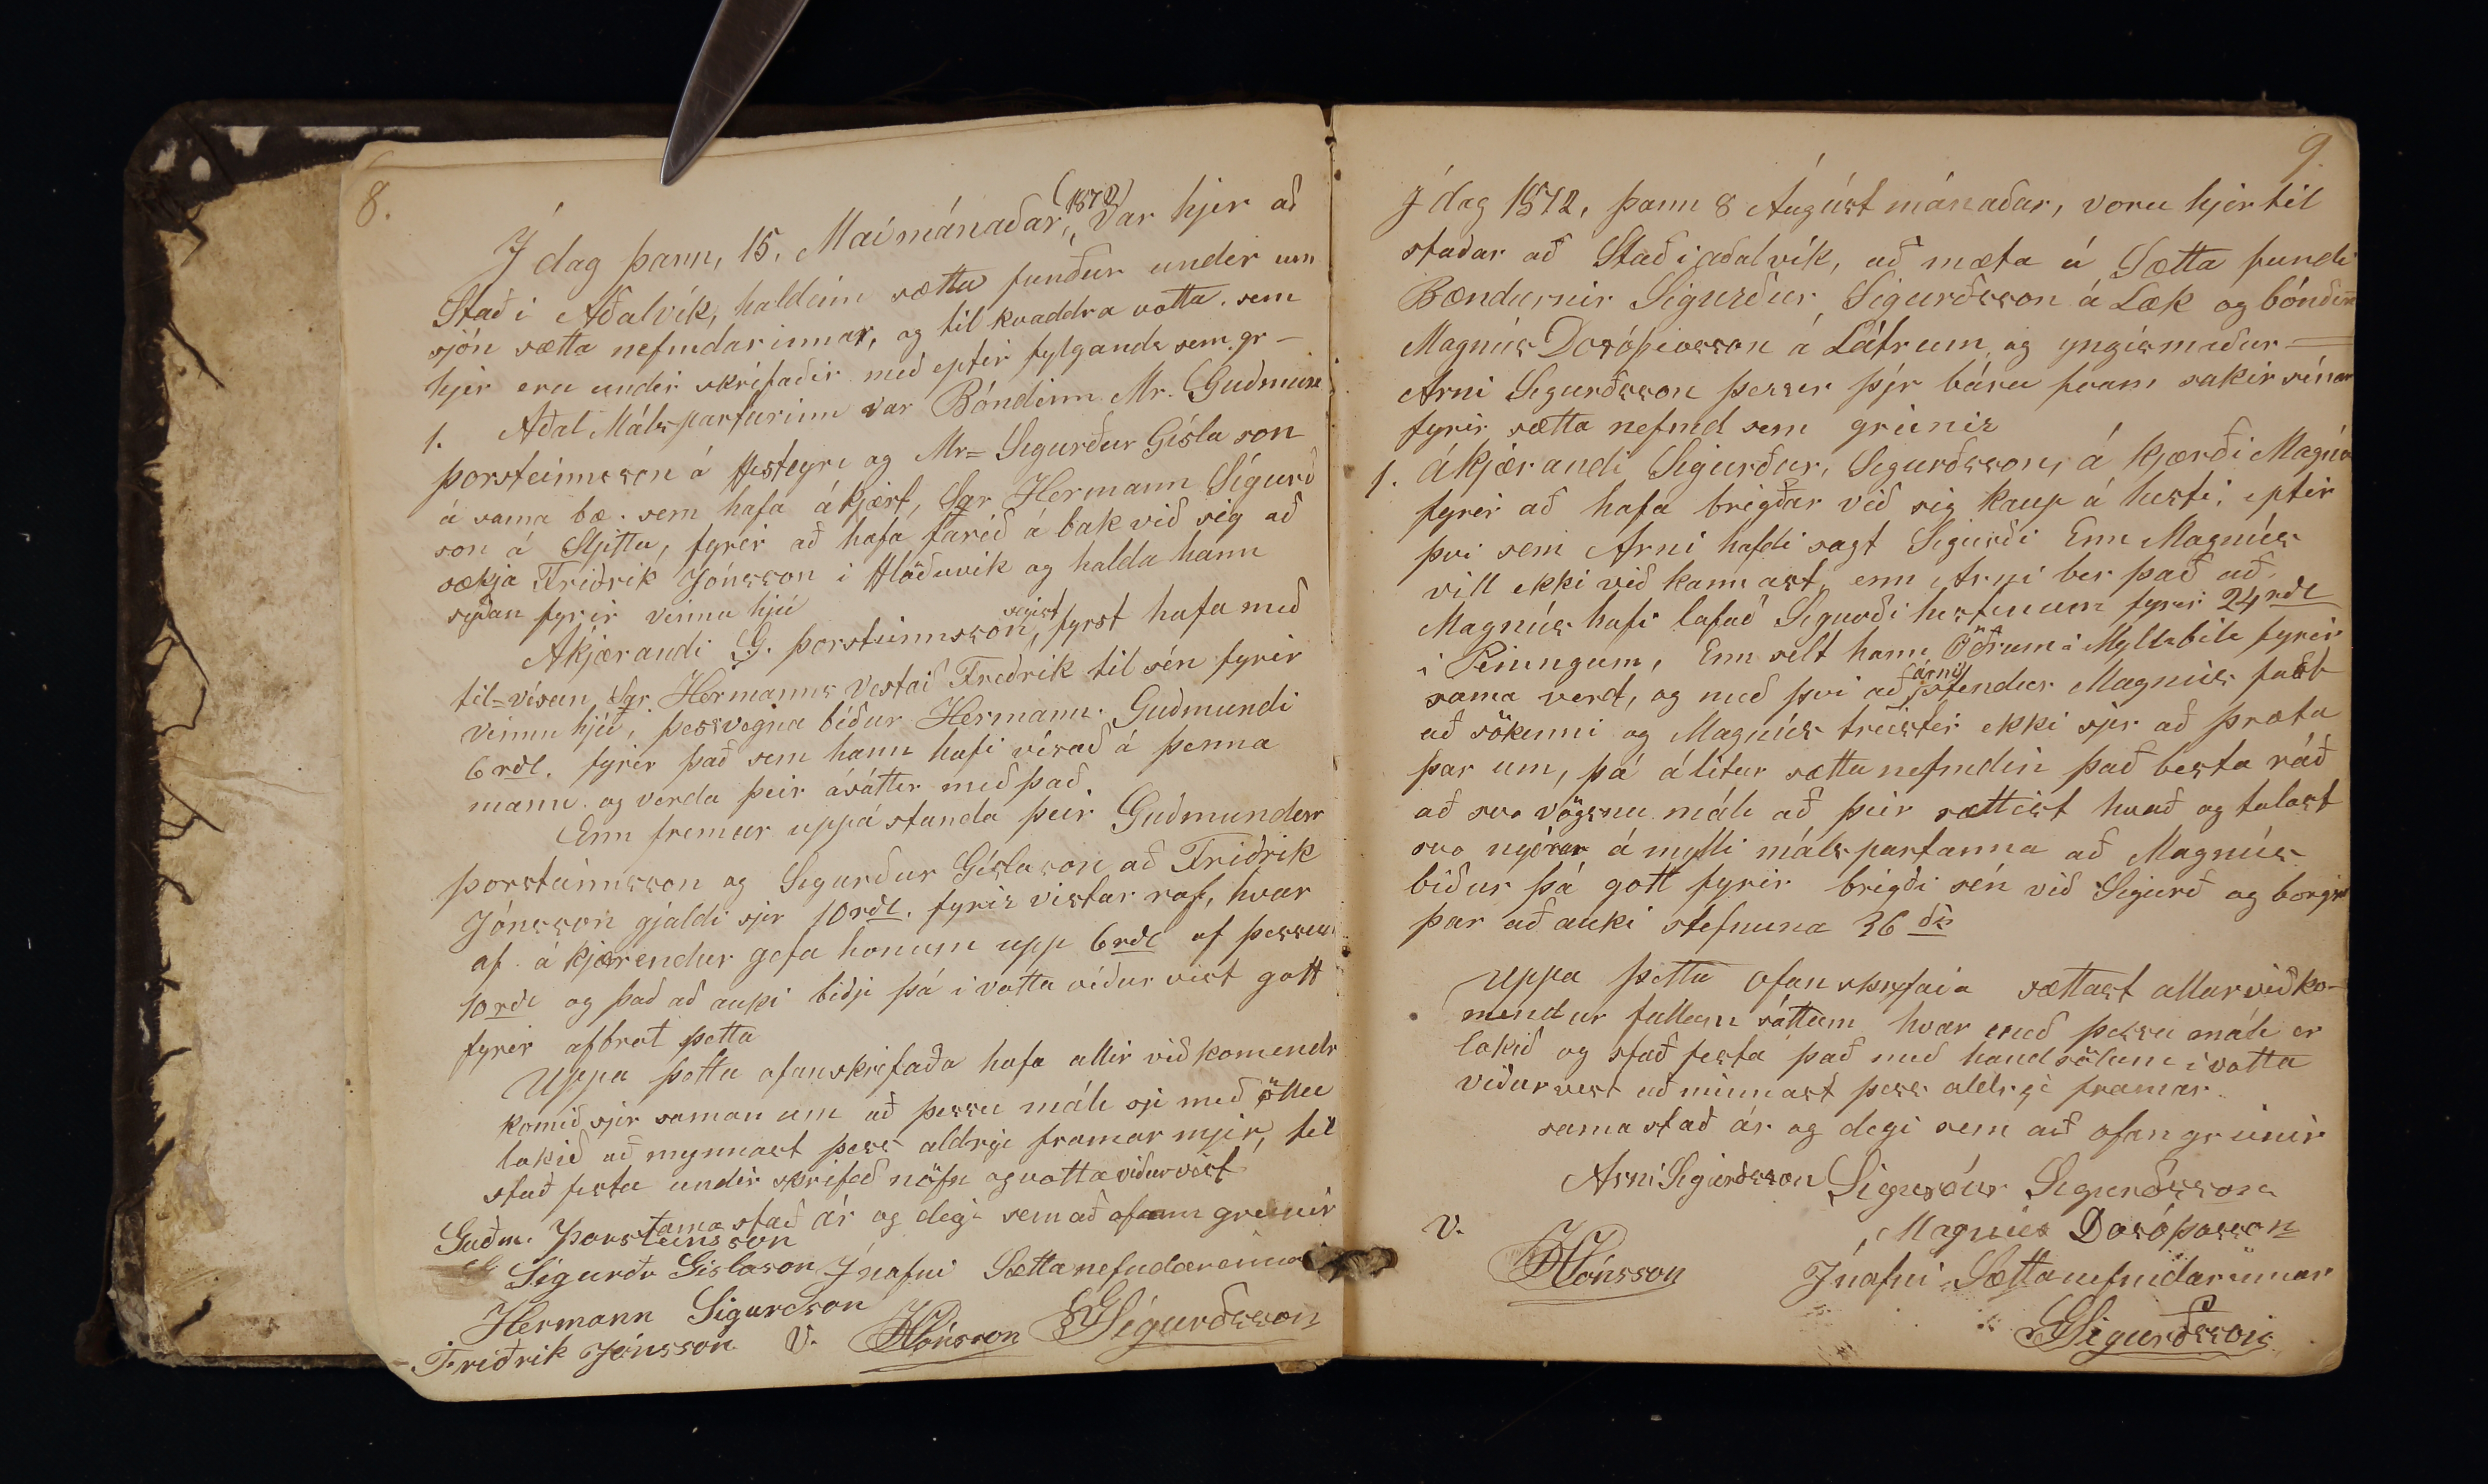 8.
Í dag þann, 15. Maí mánaðar, (1872) Var hjer að
Stað í Aðalvík, haldinn sætta fundur undir um
sjón sætta nefndarinnar, og til kvaddra votta. sem
hjer eru undir skrifaðir með eptir fylgande sem. gr-
1. Aðal Málspartarinn var Bóndinn Mr. Guðmun
þorsteinnsson á Hesteyri og Mr= Sigurður Gísla son
á sama bæ. sem hafa ákjært, Sgr Hermann Sígurð
son á Sljettu, fyrir að hafa farið á bak við sig að
sækja Friðrik Jónsson i Hlöðuvík og halda hann
syðan fyrir vinnu hjú
Akjærandi G. þorsteinnsson, segist fyrst hafa með
til=vísun Sgr Hermanns Vestað Freðrik til sén fyrir
vinnu hjú, þessvegna biður Hermann. Guðmundi
6 rdl. fyrir það sem hann hafi vísað á þenna
mann. og verda þeir ásáttir með það.
Enn fremur uppá standa þeir Guðmundur
þorsteinnsson og Sigurður Gíslason að Friðrik
Jónsson gjaldi sjer 10 rdl. fyrir vistar rof, hvar
af á kjærendur gefa honum upp 6 rdl af þessum
10 rdl og það að auki biðji þá i votta viður vist gott
fyrir afbrot þetta
Uppa þetta ofanskrifaða hafa allir við komendr
komið sjer saman um að þessu máli sje með öllu
lokið að mynnast þess aldrye framar mjir, til
stað festu undir skrifað nöfn og votta viðurvist
sama stað ár og degi sem að ofann greinir
Guðm. Þorsteinsson
Sigurðr Gíslason Í nafni Sættanefndarennar
Hermann Sigurdson
Friðrik Jónsson V. HJónsson SGSigurðsson
9.
Í dag 1872, þann 8 Águst mánaðar, voru hjer til
staðar að Stað i aðalvík, að mæta á Sætta fundi
Bændurnir Sigurður Sigurðsson á Læk og bóndin
Magnús Dósóþiosson á Látrum og yngismaður
Arni Sigurðsson þessir þjr báru fram sakir sínar
fyrir sætta nefnd sem greinir
1. ákjærandi Sigurður, Sigurðsson, á kjærði Magnús
fyrir að hafa brigðar við sig kaup á hesti, eptir
því sem Arni hafdi sagt Sigurði Enn Magnús
vill ekki við kannast, enn Arni ber það að
Magnús hafi lofað Sigurði hestinum fyrir 24 rdl
i Peningum, Enn selt hann Öðrum á Myllibili fyrir
sama verd, og með því að (árni) stendur Magnús fast
að sökinni og Magnús treister ekki sjer að þræta
þar um, þá álitur sættanefndin það besta ráð
að svo vögsnu máli að þeir sættist hvað og talast
svo nyðrar á mylli málspartanna að Magnús
biður þá gott fyrir brigði sén við Sigurð og borgi
þar að auki stefnuna 36 dis
Uppa þetta ofan skrifaða sættast allar við ko-
mendur fullum sáttum hvar með þessu máli er
lokið og stað festa það með handsölum i votta
viðurvest að minnast þess aldrye framar
sama stað ár og degi sem að ofan greinir
Arni Sigurðsson Sigurður Sigurðsson
V. Magnús Dosóþosson
HJónsson Í nafni Sættanefndarinnar
SGSigurðsson